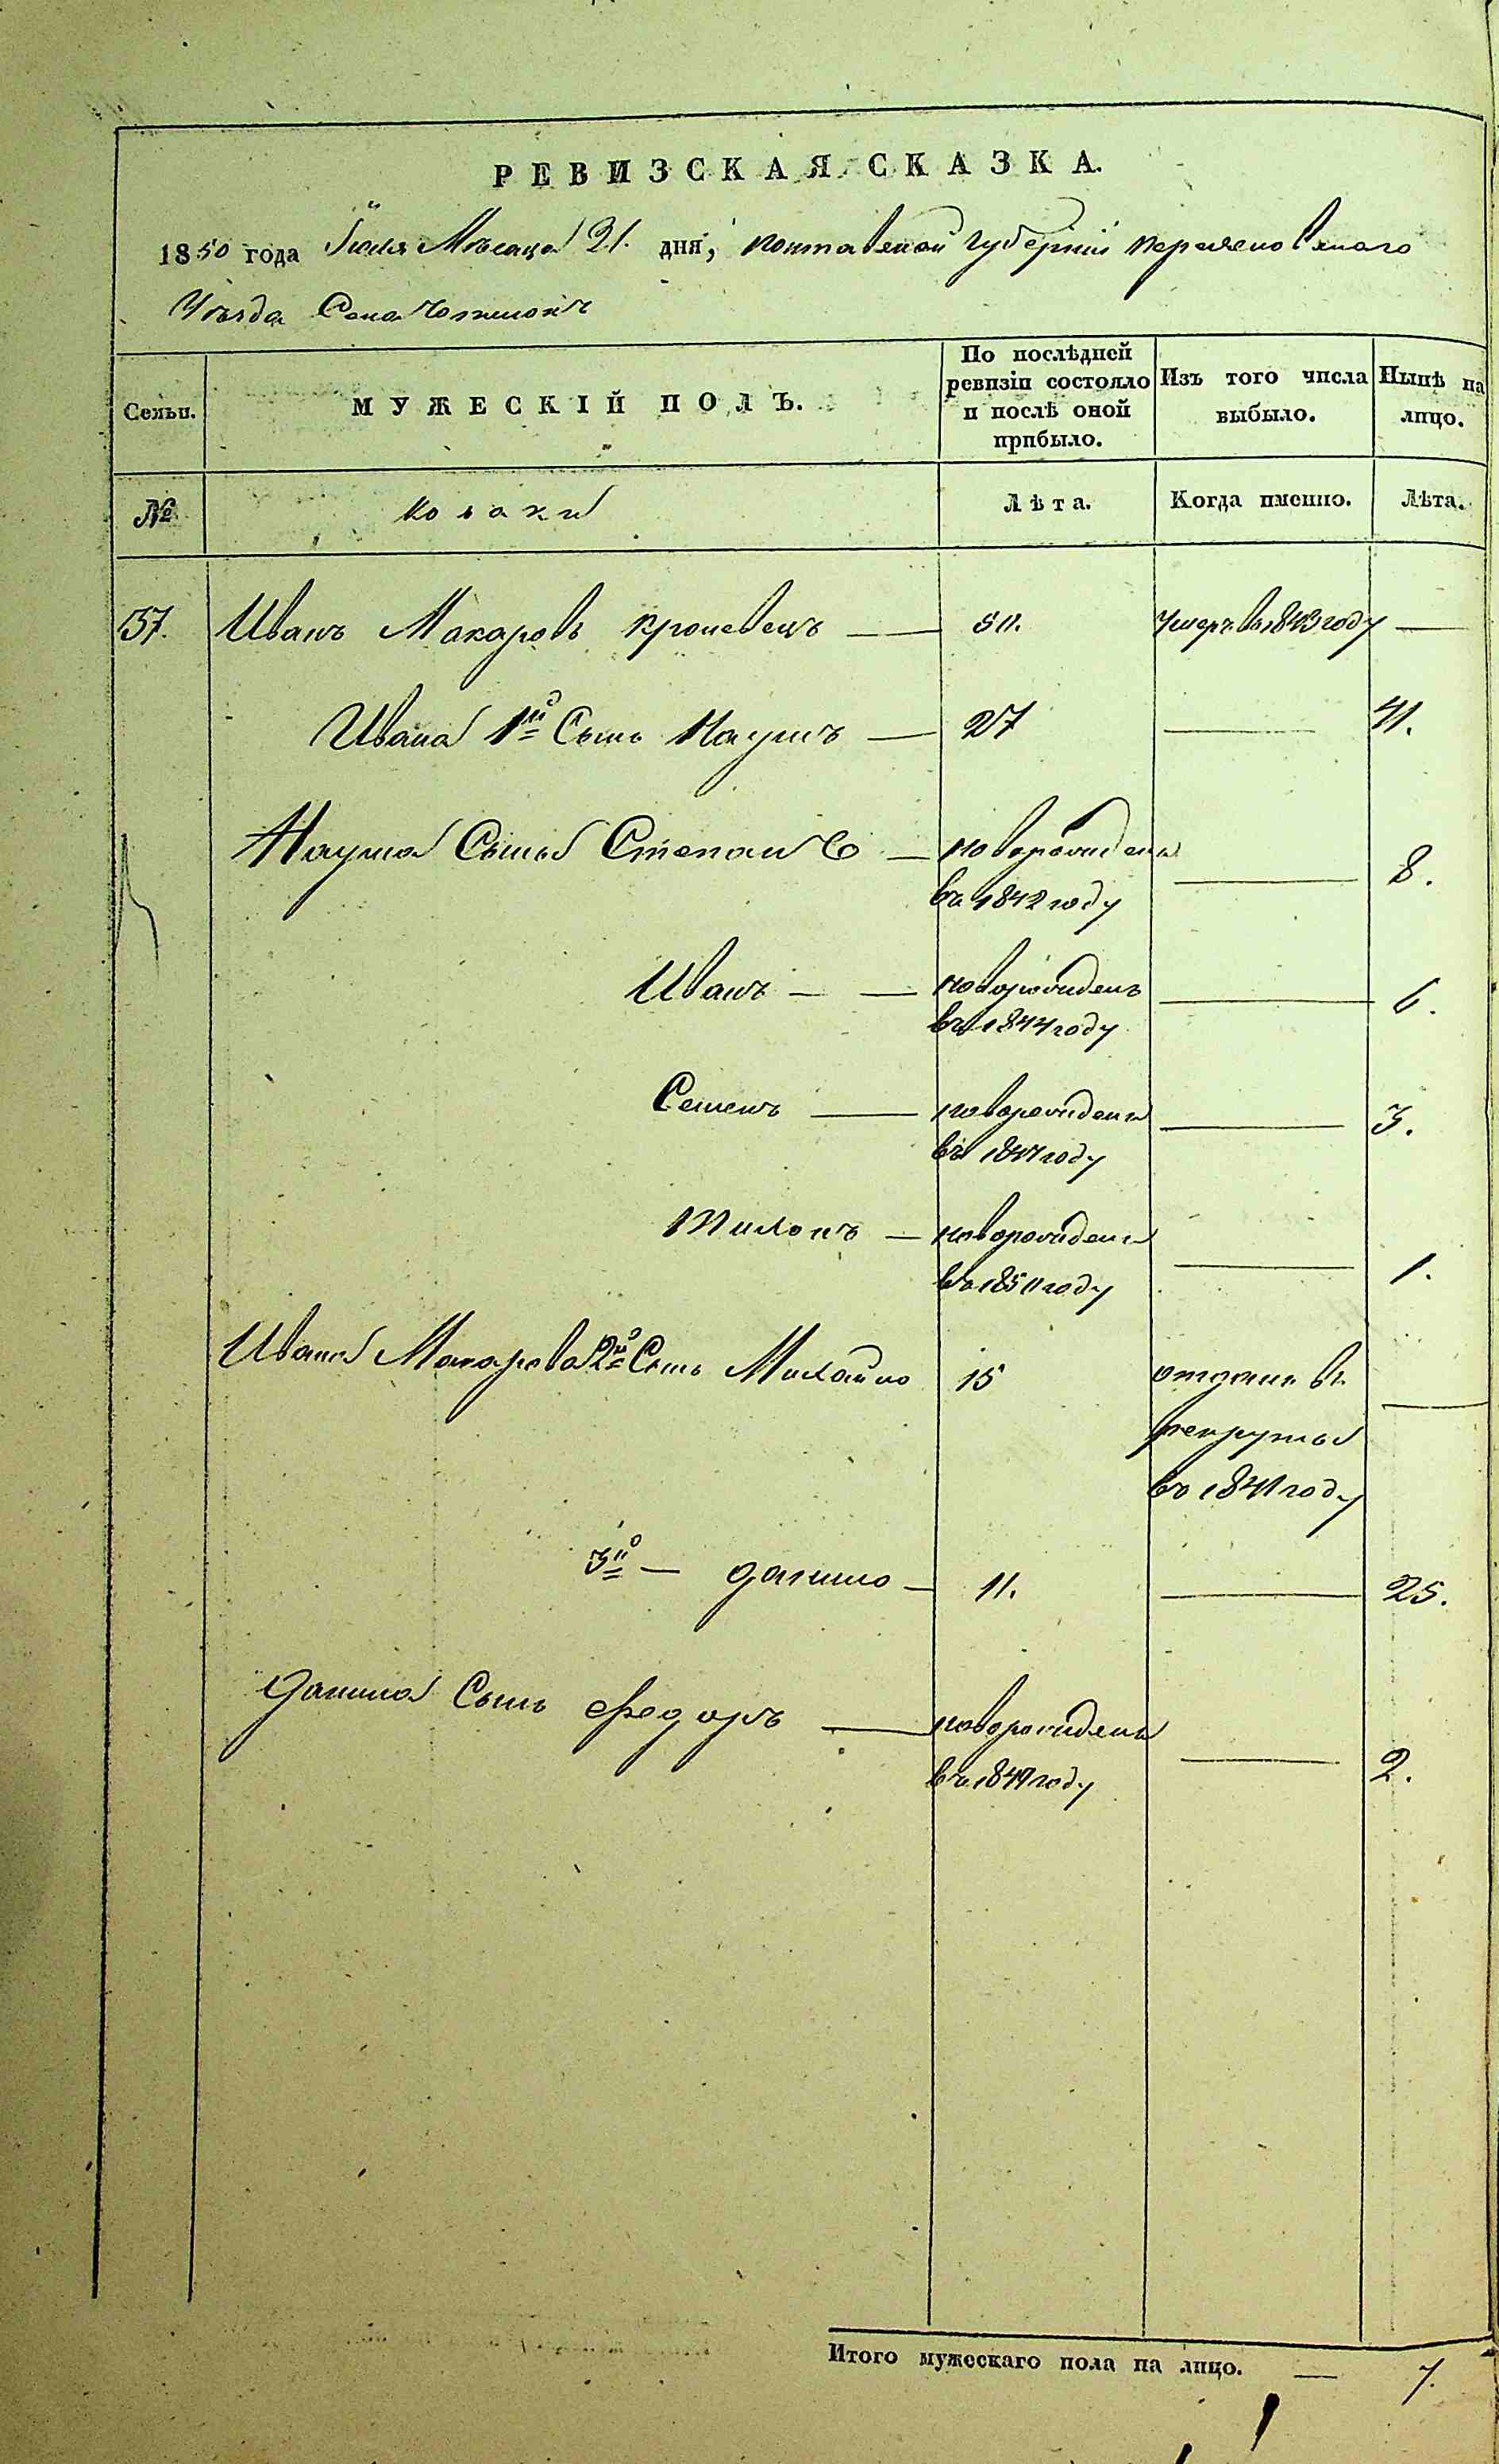 РЕВИЗСКАЯ СКАЗКА.
1850 года Іюля Мѣсяца 21. дня, полтавской губерніи переяславскаго
Уѣзда Села
Семьи. МУЖЕСКІЙ ПОЛЪ. По послѣдней ревизіи состояло и послѣ оной прибыло. Изъ того числа выбыло. Нынѣ на лицо.
№ козаки Лѣта. Когда именно. Лѣта.
57. Иванъ Макаровъ — умеръ въ 1843 году —
Ивана 1й Сынъ Наумъ — 27 — 41.
Наума Сыны Степанъ — новорожденъ
въ 1842 году — 8.
Иванъ — — новорожденъ
въ 1844 году — 6.
Семенъ — новорожденъ
въ 1847 году — 3.
Тихонъ — новорожденъ
въ 1850 году — 1.
Ивана Макарова 2й Сынъ Михайло 15 отданъ въ —
рекруты
въ 1841 году
3й — данило — 11. — 25.
Данила Сынъ Федоръ — новорожденъ
въ 1849 году — 2.
Итого мужескаго пола на лицо. — 7.